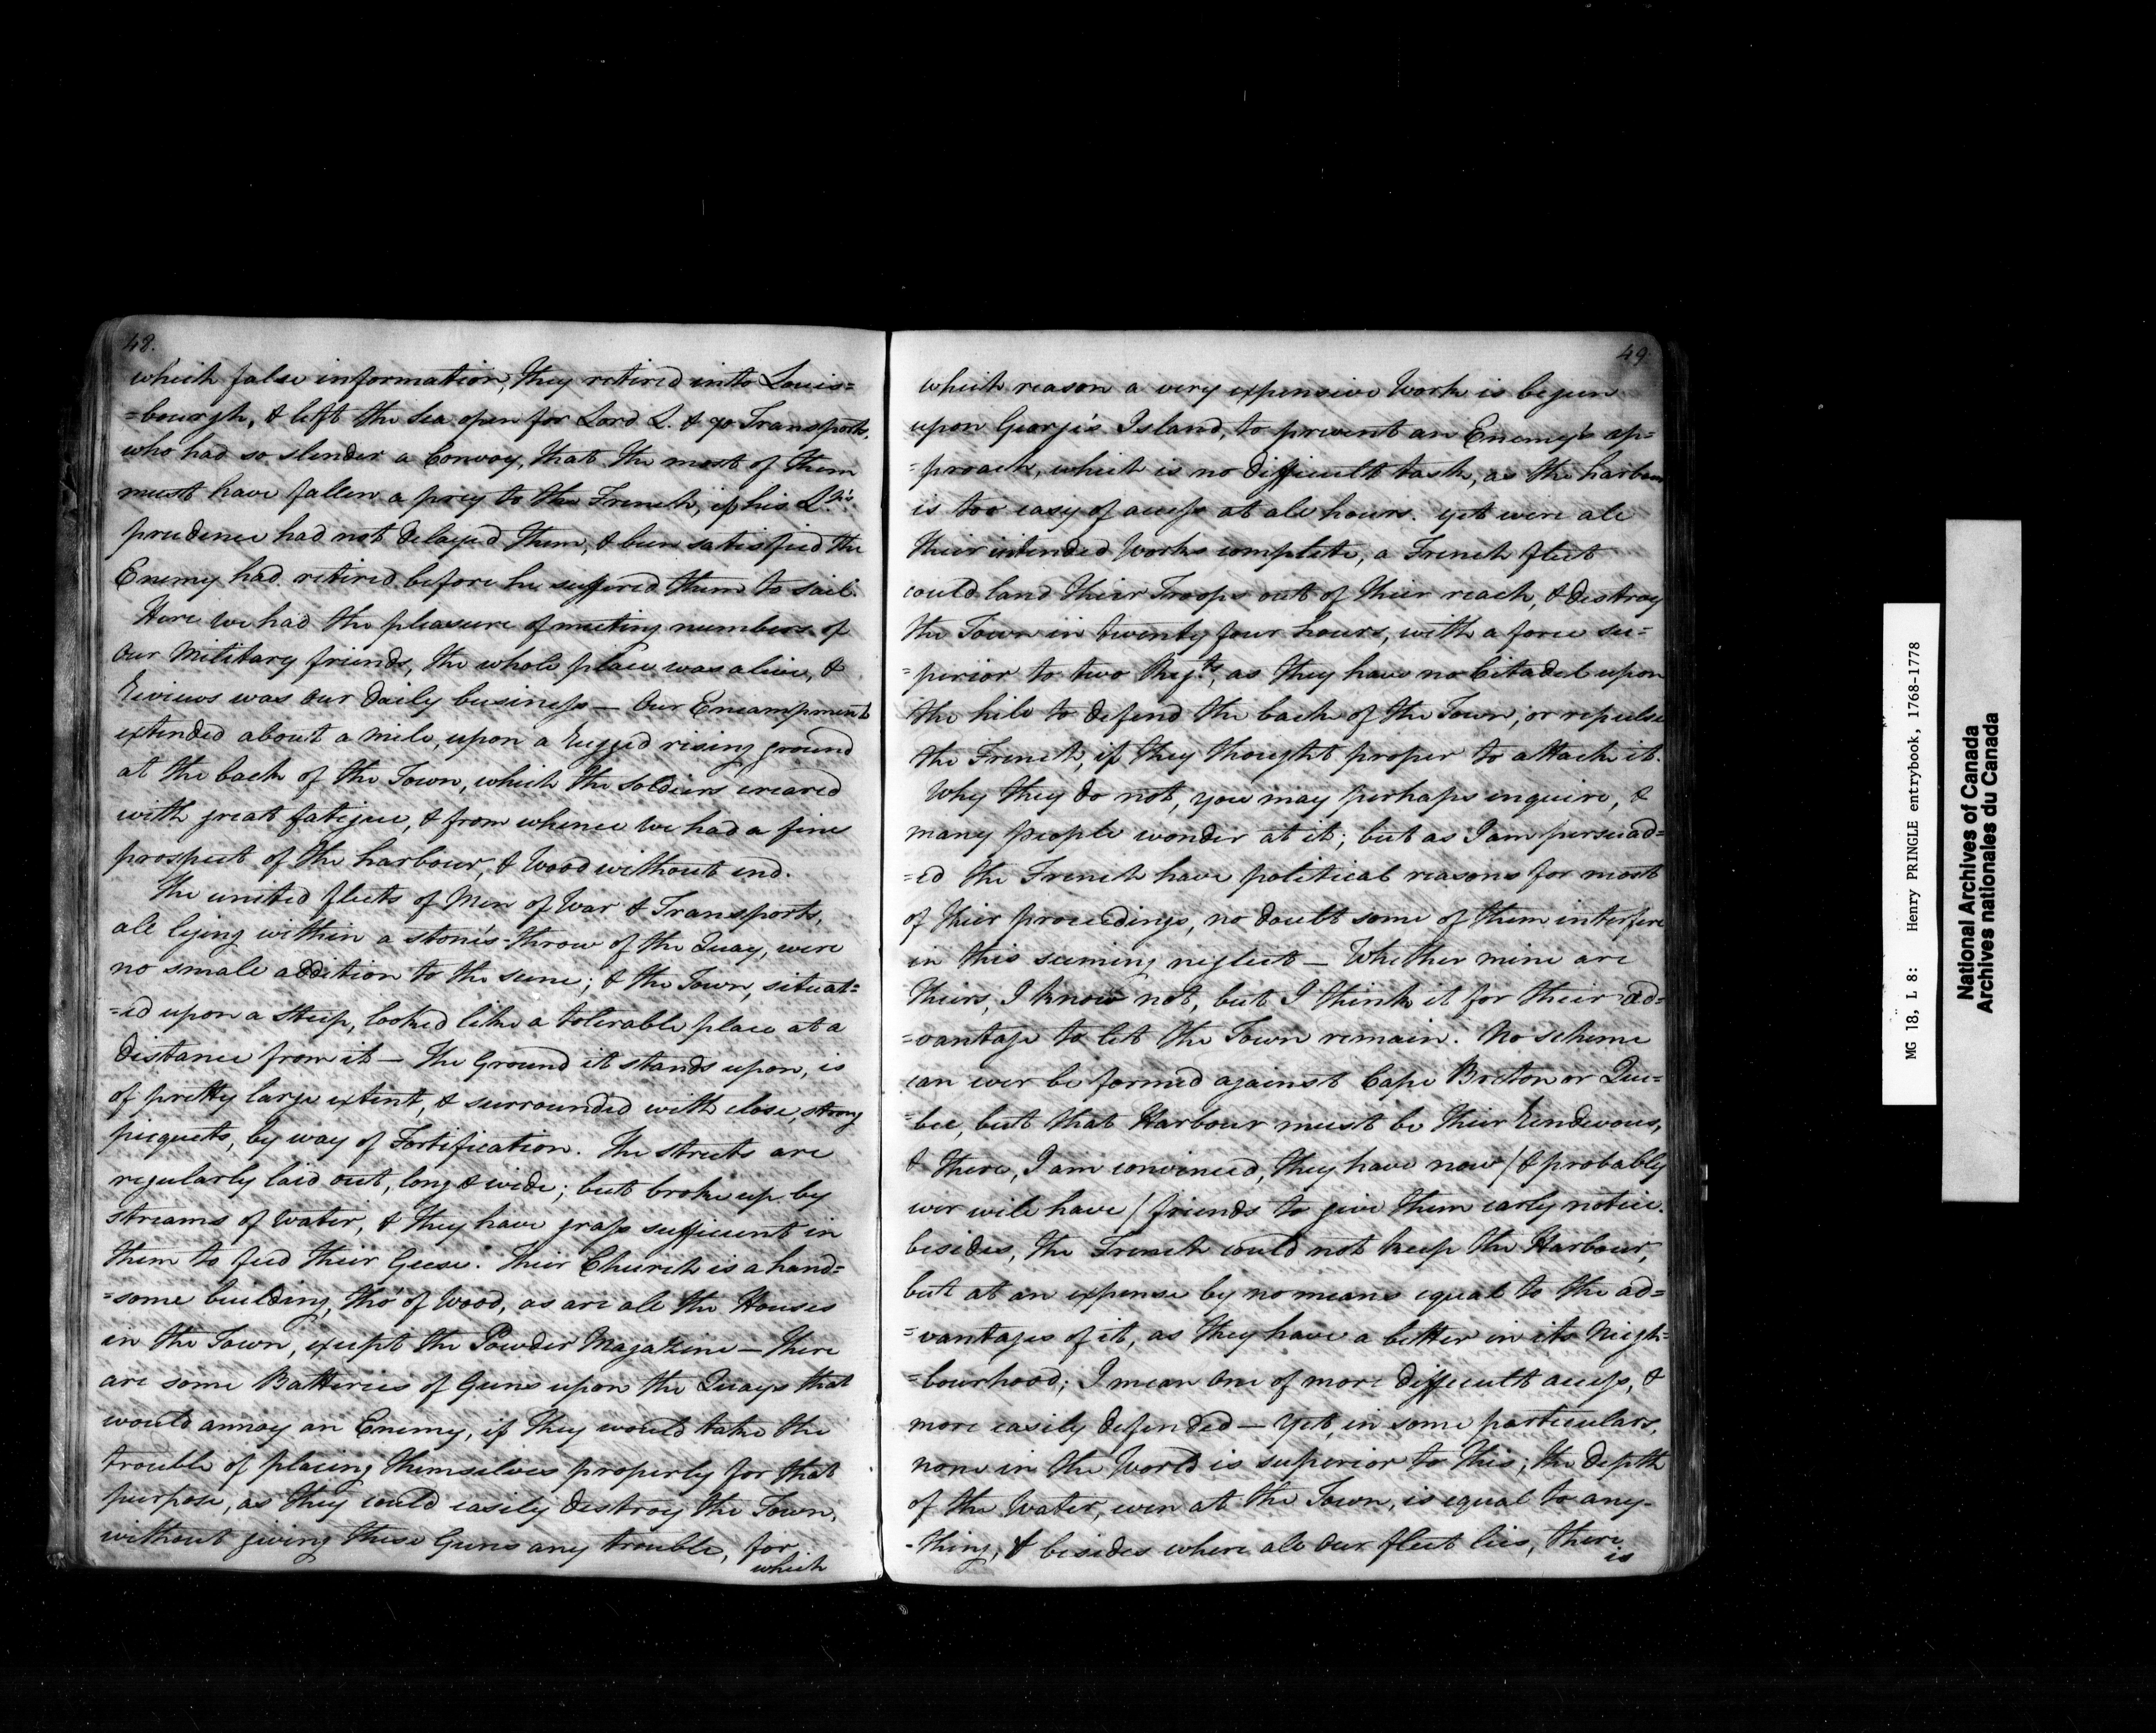 48.
which false information, they retired into Louis=
=bourgh, & left the Sea open for Lord L. & 90 Transports,
who had so slender a Convoy, that the most of them
must have fallen a prey to the French, if his Lp's
prudence had not delayed them, & been satisfied the
Enemy had retired before he suffered them to sail.
Here we had the pleasure of meeting numbers of
our Military friends, the whole place was alive, &
Reviews was our daily business — Our Encampment
extended about a mile, upon a rugged rising ground
at the back of the Town, which the Soldiers cleared
with great fatigue, & from whence we had a fine
prospect of the harbour, & Wood without end.
The united fleets of Men of War & Transports,
all lying within a stone's throw of the Quay, were
no small addition to the scene; & the Town, situat=
=ed upon a Steep, looked like a tolerable place at a
distance from it — The Ground it stands upon, is
of pretty large extent, & surrounded with close, strong
picquets, by way of Fortification. The streets are
regularly laid out, long & wide; but broke up by
streams of water, & they have grass sufficient in
them to feed their Geese. Their Church is a hand=
=some building, tho' of Wood, as are all the Houses
in the Town, except the Powder Magazine — There
are some Batteries of Guns upon the Quays that
would annoy an Enemy, if they would take the
trouble of placing themselves properly for that
purpose, as they could easily destroy the Town,
without giving these Guns any trouble, for
which
49.
which reason a very expensive Work is begun
upon George's Island, to prevent an Enemy's ap=
=proach, which is no difficult task, as the harbour
is too easy of access at all hours. yet were all
their intended Works complete, a French fleet
could land their Troops out of their reach, & destroy
the Town in twenty four hours, with a force su=
=perior to two Regts, as they have no Citadel upon
the hill to defend the back of the Town, or repulse
the French, if they thought proper to attack it.
Why they do not, you may perhaps inquire, &
many people wonder at it; but as I am persuad=
=ed the French have political reasons for most
of their proceedings, no doubt some of them interfere
in this seeming neglect — Whether mine are
theirs, I know not, but I think it for their ad=
=vantage to let the Town remain. No scheme
can ever be formed against Cape Breton or Que=
=bec, but that Harbour must be their Rendevous,
& there, I am convinced, they have now (& probably
ever will have) friends to give them early notice.
besides, the French could not keep the Harbour,
but at an expense by no means equal to the ad=
=vantages of it, as they have a better in its Neigh=
=bourhood; I mean one of more difficult access, &
more easily defended — Yet, in some particulars,
none in the World is superior to this; the depth
of the Water, even at the Town, is equal to any-
-thing, & besides where all our fleet lies, there
is
MG 18, L 8: Henry PRINGLE entrybook, 1768-1778
National Archives of Canada
Archives nationales du Canada